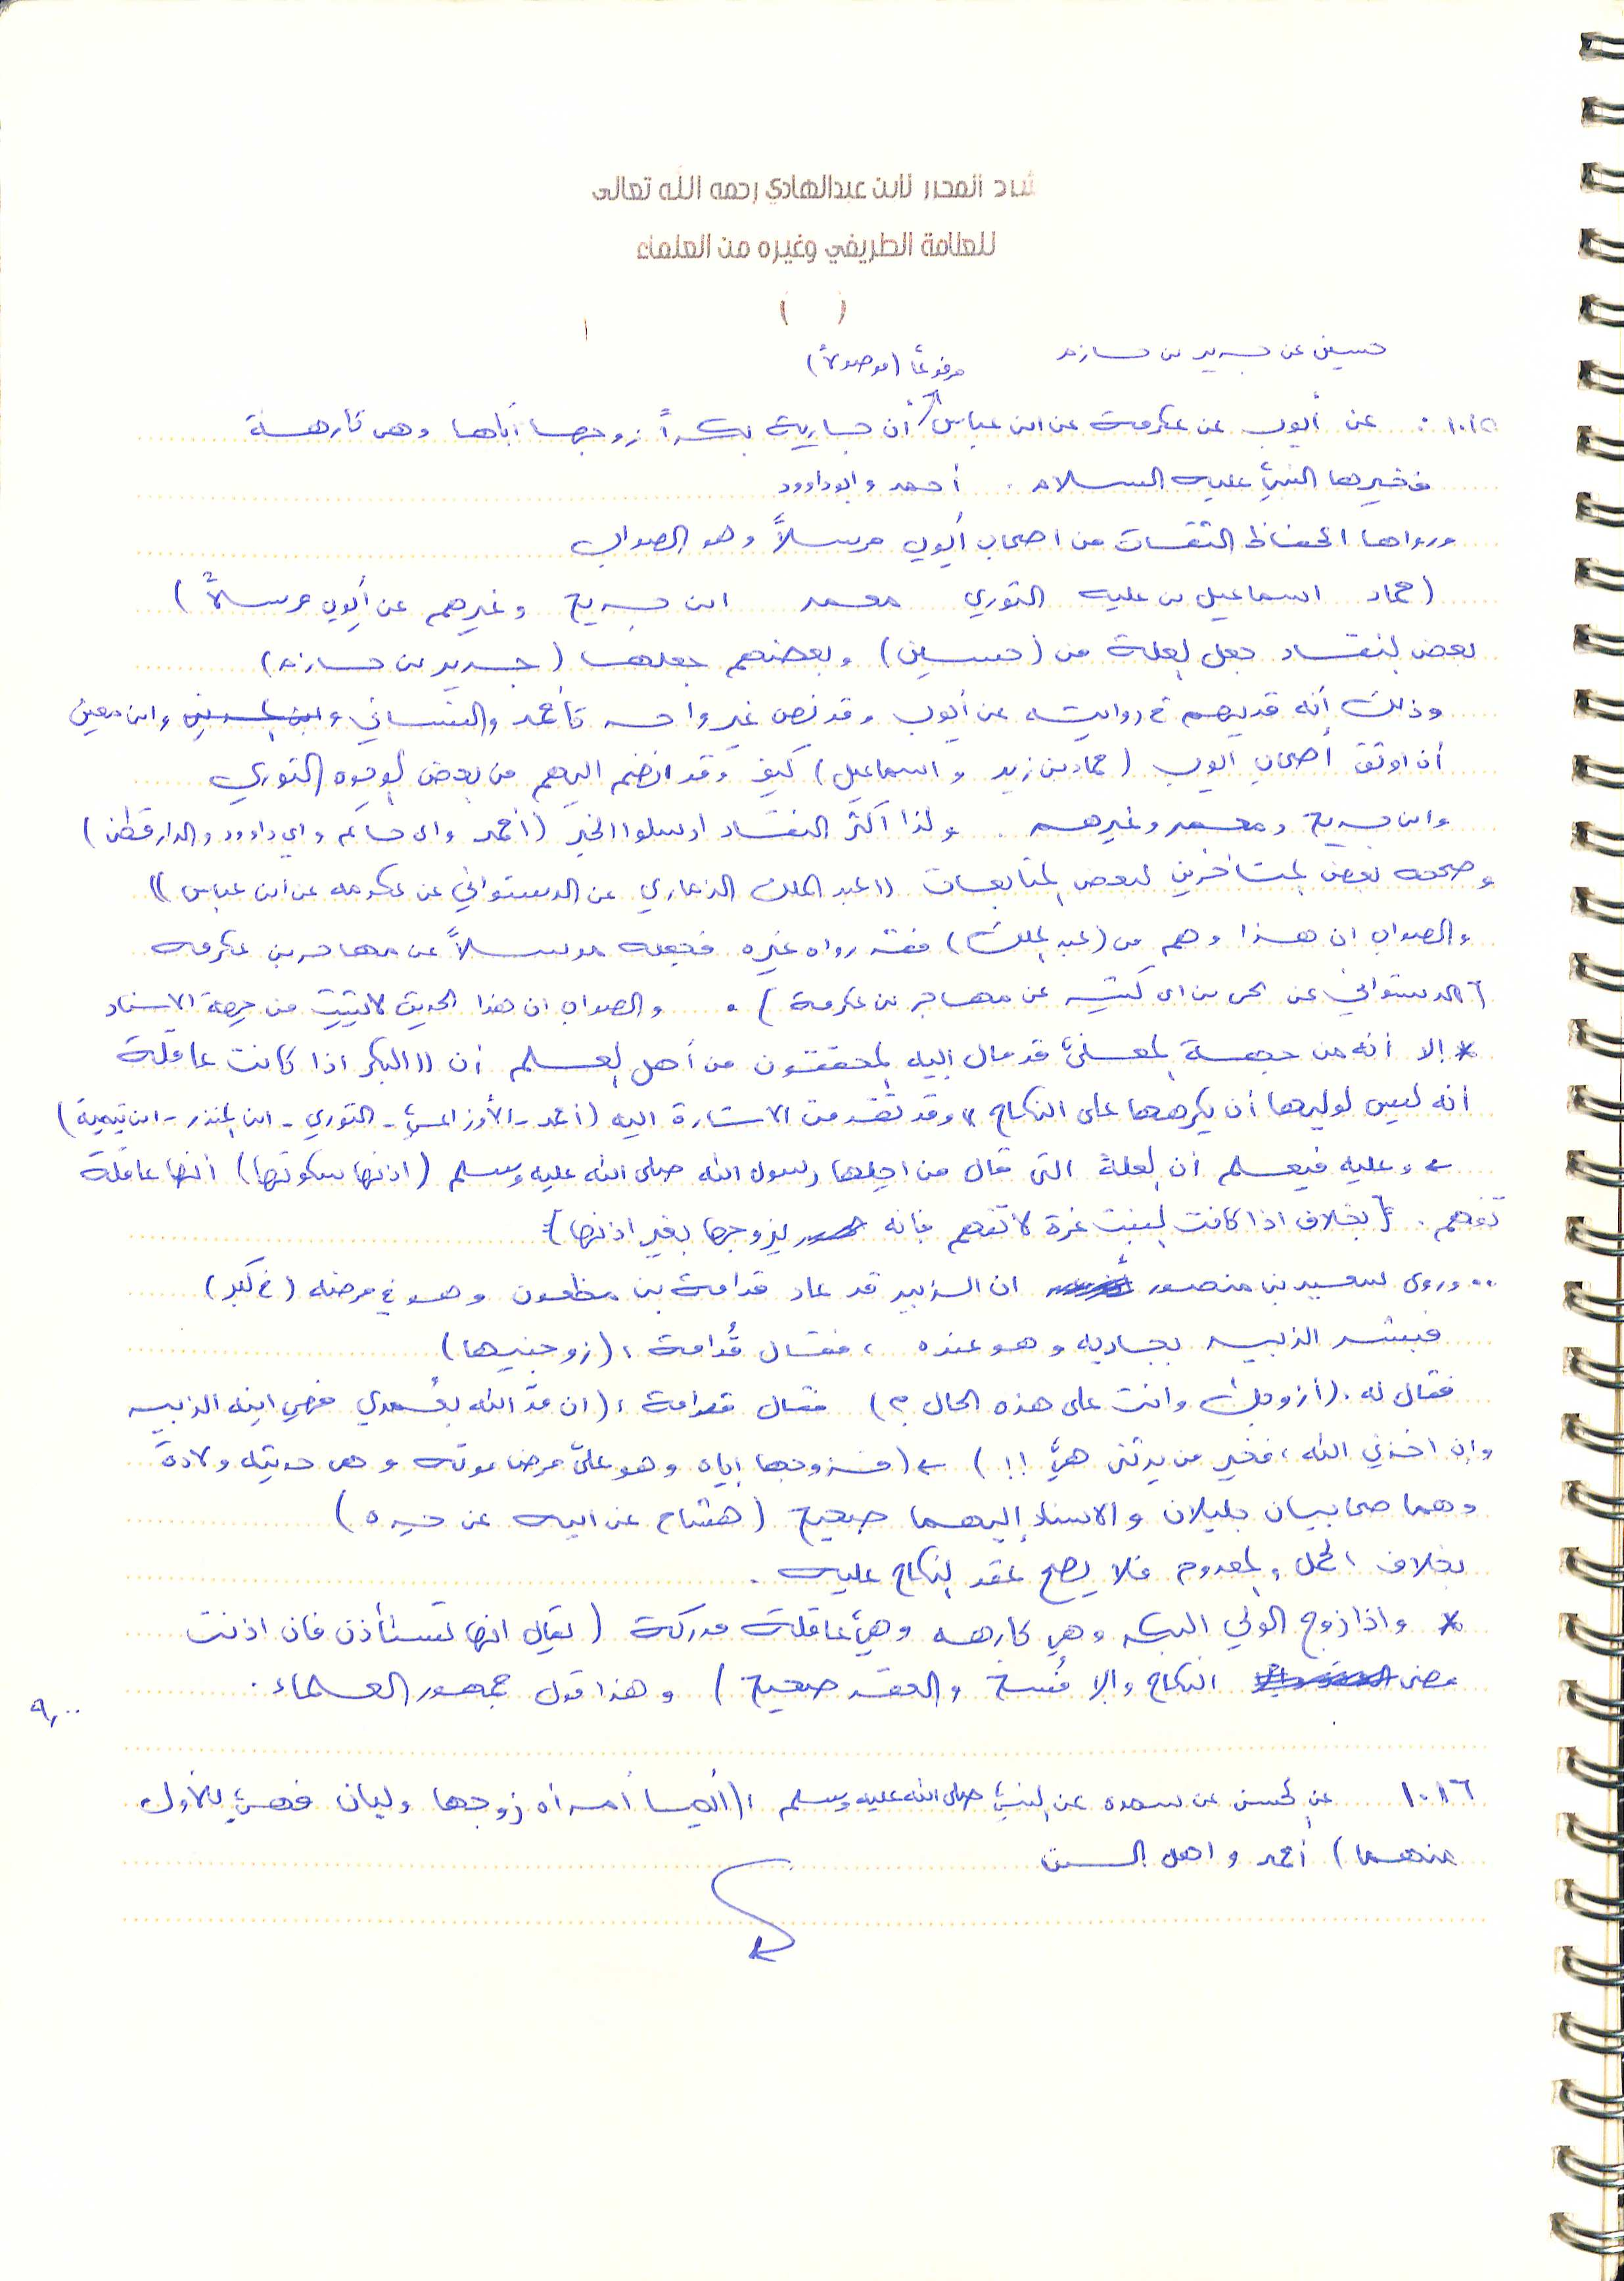 شرح المحرر لابن عبدالهادي رحمه الله تعالى
للعلامة الطريفي وغيره من العلماء
( )
حسين عن جرير بن حازم
مرفوعاً (موصولاً)
١٠١٥ : عن أيوب عن عكرمة عن ابن عباس أن جارية بكراً زوجها أباها وهي كارهة
فخيرها النبي عليه السلام . أحمد وابوداوود
ورواها الحفاظ الثقات من اصحاب أيوب مرسلاً وهو الصواب
(حماد اسماعيل بن عليه الثوري معمر ابن جريج وغيرهم عن أيوب مرسلاً)
بعض النقاد جعل العلة من (حسين) وبعضهم جعلها (جرير بن حازم)
وذلك أنه قد يهم في روايته عن أيوب وقد نص غير واحد كأحمد والنسائي وابن معين
أن اوثق أصحاب ايوب (حماد بن زيد واسماعيل) كيف وقد انضم اليهم من بعض الوجوه الثوري
وابن جريج ومعمر وغيرهم . ولذا أكثر النقاد ارسلوا الخبر (أحمد وابي حاتم وابي داوود والدارقطني)
وصححه بعض المتأخرين لبعض المتابعات ((عبد الملك الذماري عن الدستوائي عن عكرمه عن ابن عباس))
والصواب ان هذا وهم من (عبد الملك) فقد رواه غيره فجعله مرسلاً عن مهاجر بن عكرمه
(الدستوائي عن يحيى بن ابي كثير عن مهاجر بن عكرمة) . والصواب ان هذا الحديث لا يثبت من جهة الاسناد
* إلا أنه من جهة المعنى قد مال إليه المحققون من أهل العلم أن ((البكر اذا كانت عاقلة
أنه ليس لوليها أن يكرهها على النكاح)) وقد تقدمت الاشارة اليه (أحمد - الأوزاعي - الثوري - ابن المنذر - ابن تيمية)
← وعليه فيعلم أن العلة التي قال من اجلها رسول الله صلى الله عليه وسلم (اذنها سكوتها) أنها عاقلة
تفهم . {بخلاف اذا كانت البنت غرة لا تفهم فانه يزوجها بغير اذنها}
.. وروى سعيد بن منصور ان الزبير قد عاد قدامة بن مظعون وهو في مرضه (في كبر)
فبشر الزبير بجاريه وهو عنده ، فقال قُدامة : (زوجنيها)
فقال له . (أزوجك وانت على هذه الحال ؟) فقال قدامة : (ان مدّ الله بعُمري فهي ابنة الزبير
وإن اخذني الله ، فخير من يرثني هيَّ !!) ← (فزوجها إياه وهو على مرض موته وهي حديثة ولادة
وهما صحابيان جليلان والاسناد إليهما صحيح (هشام عن ابيه عن جده)
بخلاف الحمل والمعدوم فلا يصح عقد النكاح عليه .
* واذا زوج الولي البكر وهي كارهه وهي عاقلة مدركة (يقال انها تستأذن فان اذنت
مضى النكاح والا فُسخ والعقد صحيح) وهذا قول جمهور العلماء .
٩,٠٠
١٠١٦ عن الحسن عن سمره عن النبي صلى الله عليه وسلم : (أيما امرأه زوجها وليان فهي للأول
منهما) أحمد واهل السنن